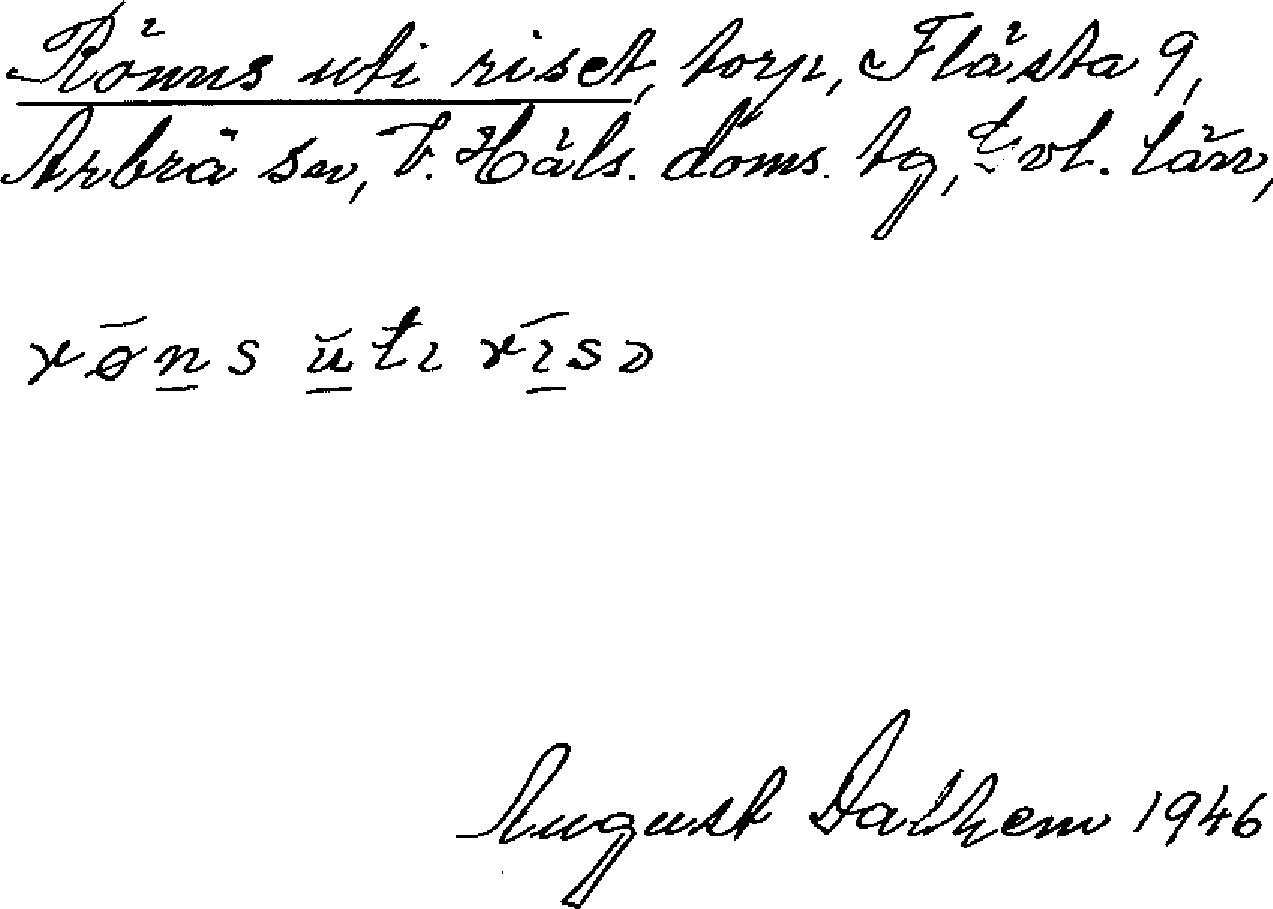 Rönns uti riset, torp, Flästa 9,
Arbrå sn, V. Häls. doms. tg, Gvl. län,
røns uti risə
August Dalhem 1946